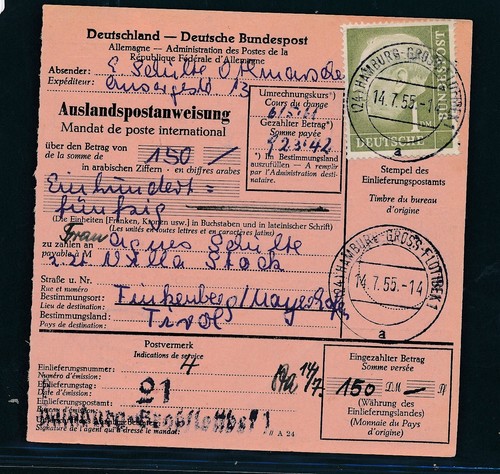 Deutschland — Deutsche Bundespost
Allemagne — Administration des Postes de la
République Fédérale d'Allemagne
Absender: E. Schulte Othmarschen
Expéditeur: 13
Auslandspostanweisung
Mandat de poste international
über den Betrag von
de la somme de 150/
in arabischen Ziffern - en chiffres arabes
Einhundert =
fünfzig
(Die Einheiten [Franken, Kronen usw.] in Buchstaben und in lateinischer Schrift)
(Les unités en toutes lettres et en caractères latins)
Umrechnungskurs*)
Cours du change
Gezahlter Betrag*)
Somme payée
923.42
*) Im Bestimmungsland
auszufüllen - A remplir
par l'Administration desti-
nataire.
BUNDESPOST
DEUTSCHE
(24a) HAMBURG-GROSS FLOTTBEK 1
14.7.55.-14
a
Stempel des
Einlieferungspostamts
Timbre du bureau
d'origine
zu zahlen an Frau Agnes Schulte
payable à M
z. Zt. Villa Stock
Straße u. Nr.
Rue et numéro
Bestimmungsort: Finkenberg/Mayerhofen
Lieu de destination:
Bestimmungsland: Tirol
Pays de destination:
(24a) HAMBURG-GROSS FLOTTBEK 1
14.7.55.-14
a
Postvermerk
Indications de service
Einlieferungsnummer: 4
Numéro d'émission:
Einlieferungstag:
Date d'émission: 21
Einlieferungspostamt:
Bureau d'émission:
Hamburg-Großflottbek 1
Signature de l'agent qui a dressé le mandat:
A 24
14/7
Eingezahlter Betrag
Somme versée
150 DM — Pf
(Währung des
Einlieferungslandes)
(Monnaie du Pays
d'origine)